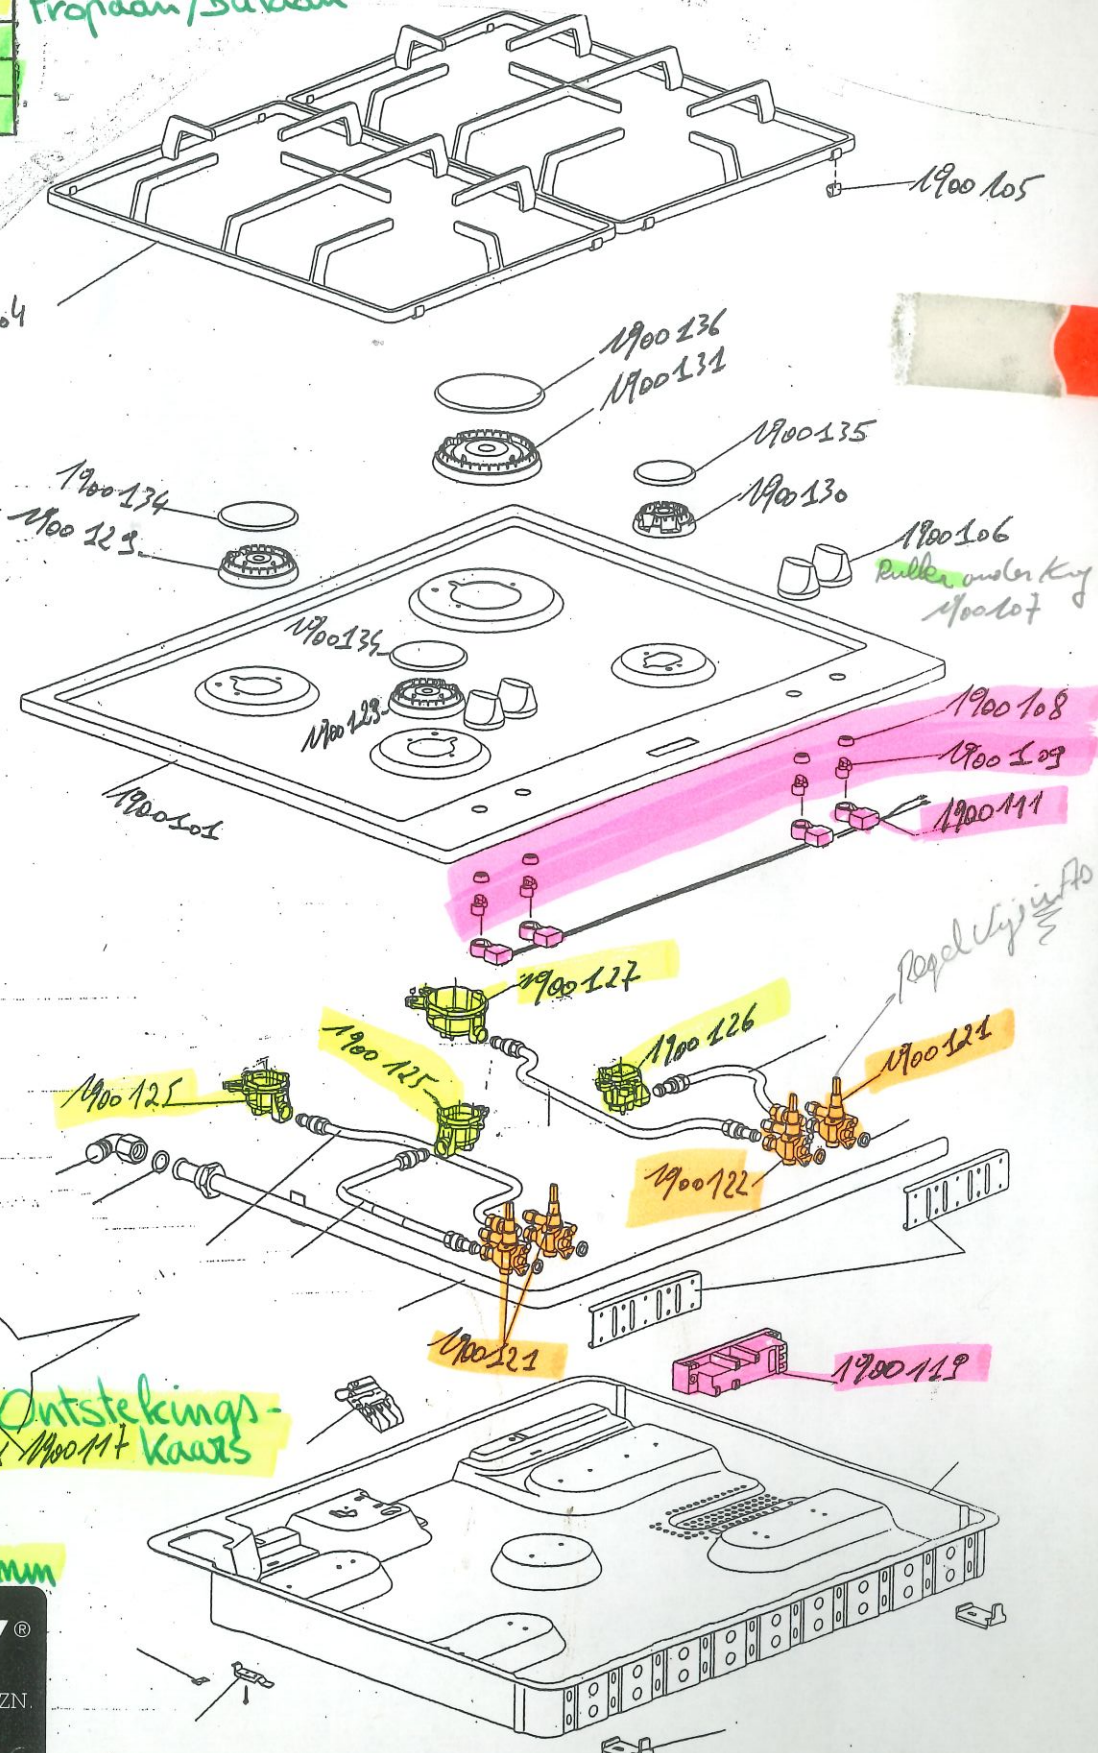 Propaan/Butaan
1900105
04
1900136
1900131
1900135
1900130
1900134
1900129
1900106
Rubber onder Knop
1900107
1900134
1900129
1900101
1900108
1900109
1900111
Regel Vijs in As
1900127
1900125
1900126
1900121
1900125
1900122
1900121
1900119
Ontstekings-
1900117 Kaars
mm
®
ZN.